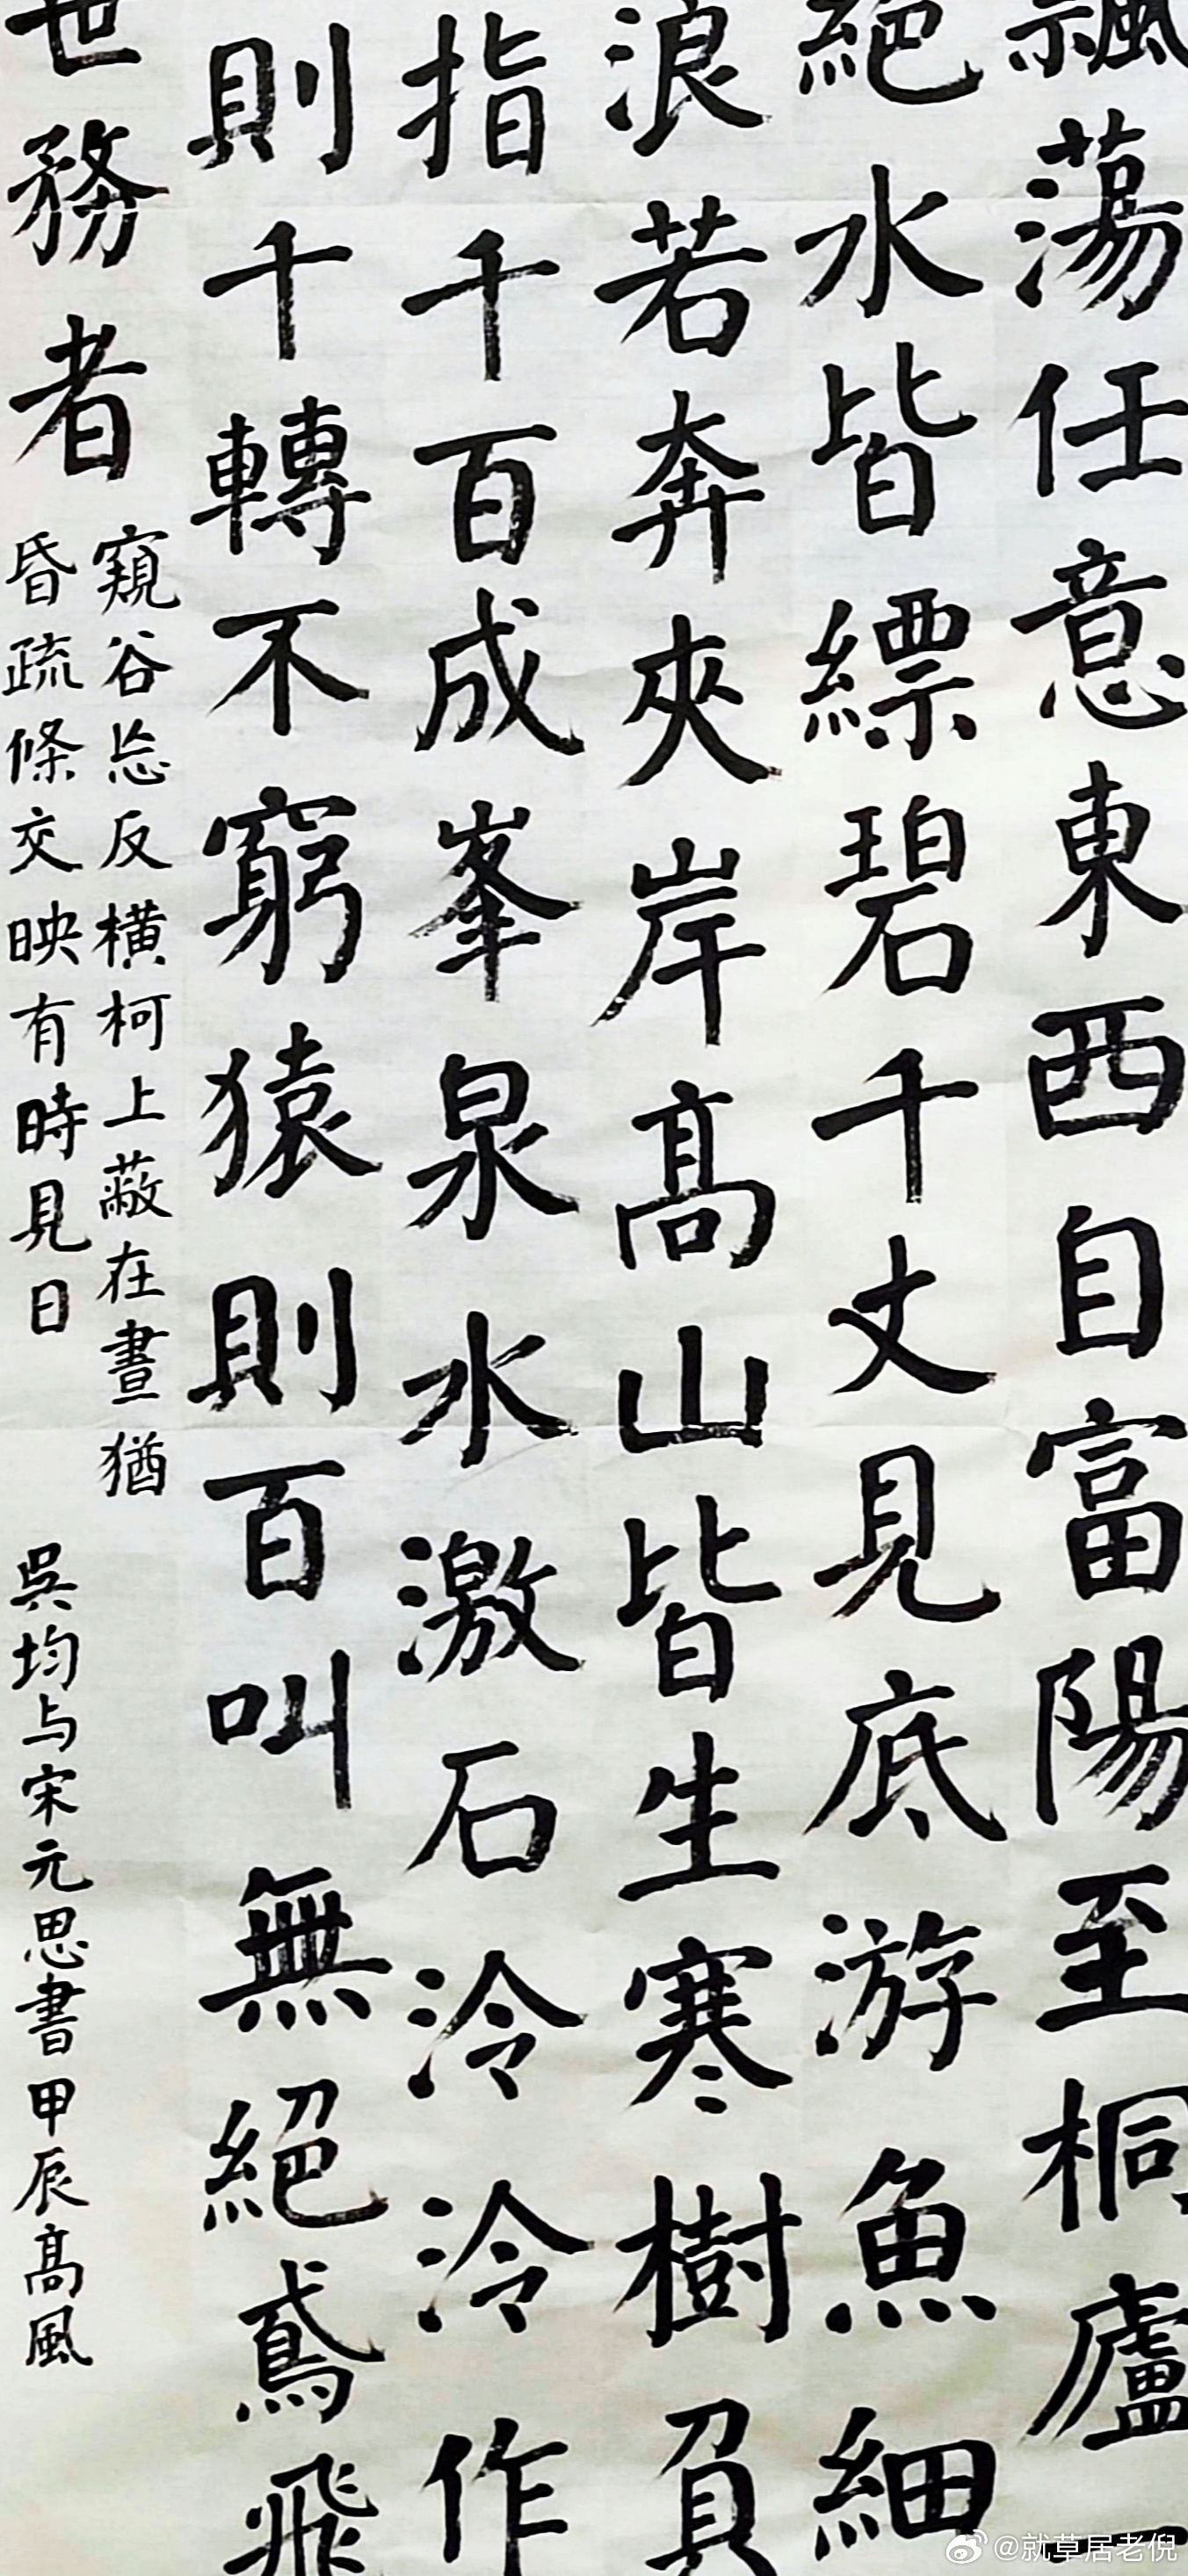 飄蕩任意東西自富陽至桐廬
絕水皆縹碧千丈見底游魚細
浪若奔夾岸高山皆生寒樹負
指千百成峯泉水激石泠泠作
則千轉不窮猿則百叫無絕鳶飛
世務者
窺谷忘反橫柯上蔽在晝猶
昏疏條交映有時見日
吳均与宋元思書甲辰高風
@就草居老倪